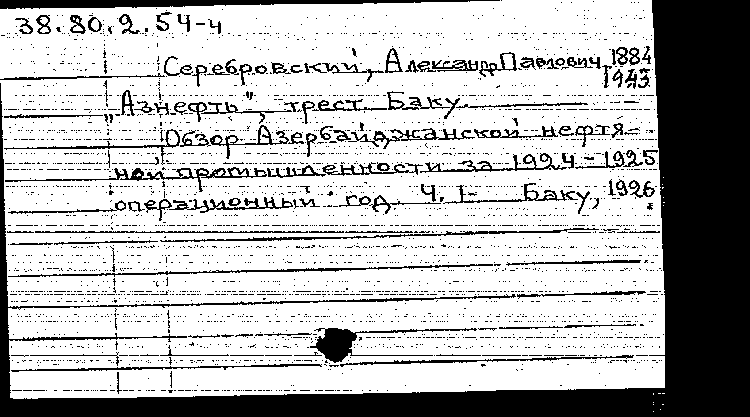 38.80.2.54-4
Серебровский, Александр Павлович, 1884
1943
„Азнефть", трест. Баку.
Обзор Азербайджанской нефтя-
ной промышленности за 1924-1925
операционный год. Ч. I- Баку, 1926.